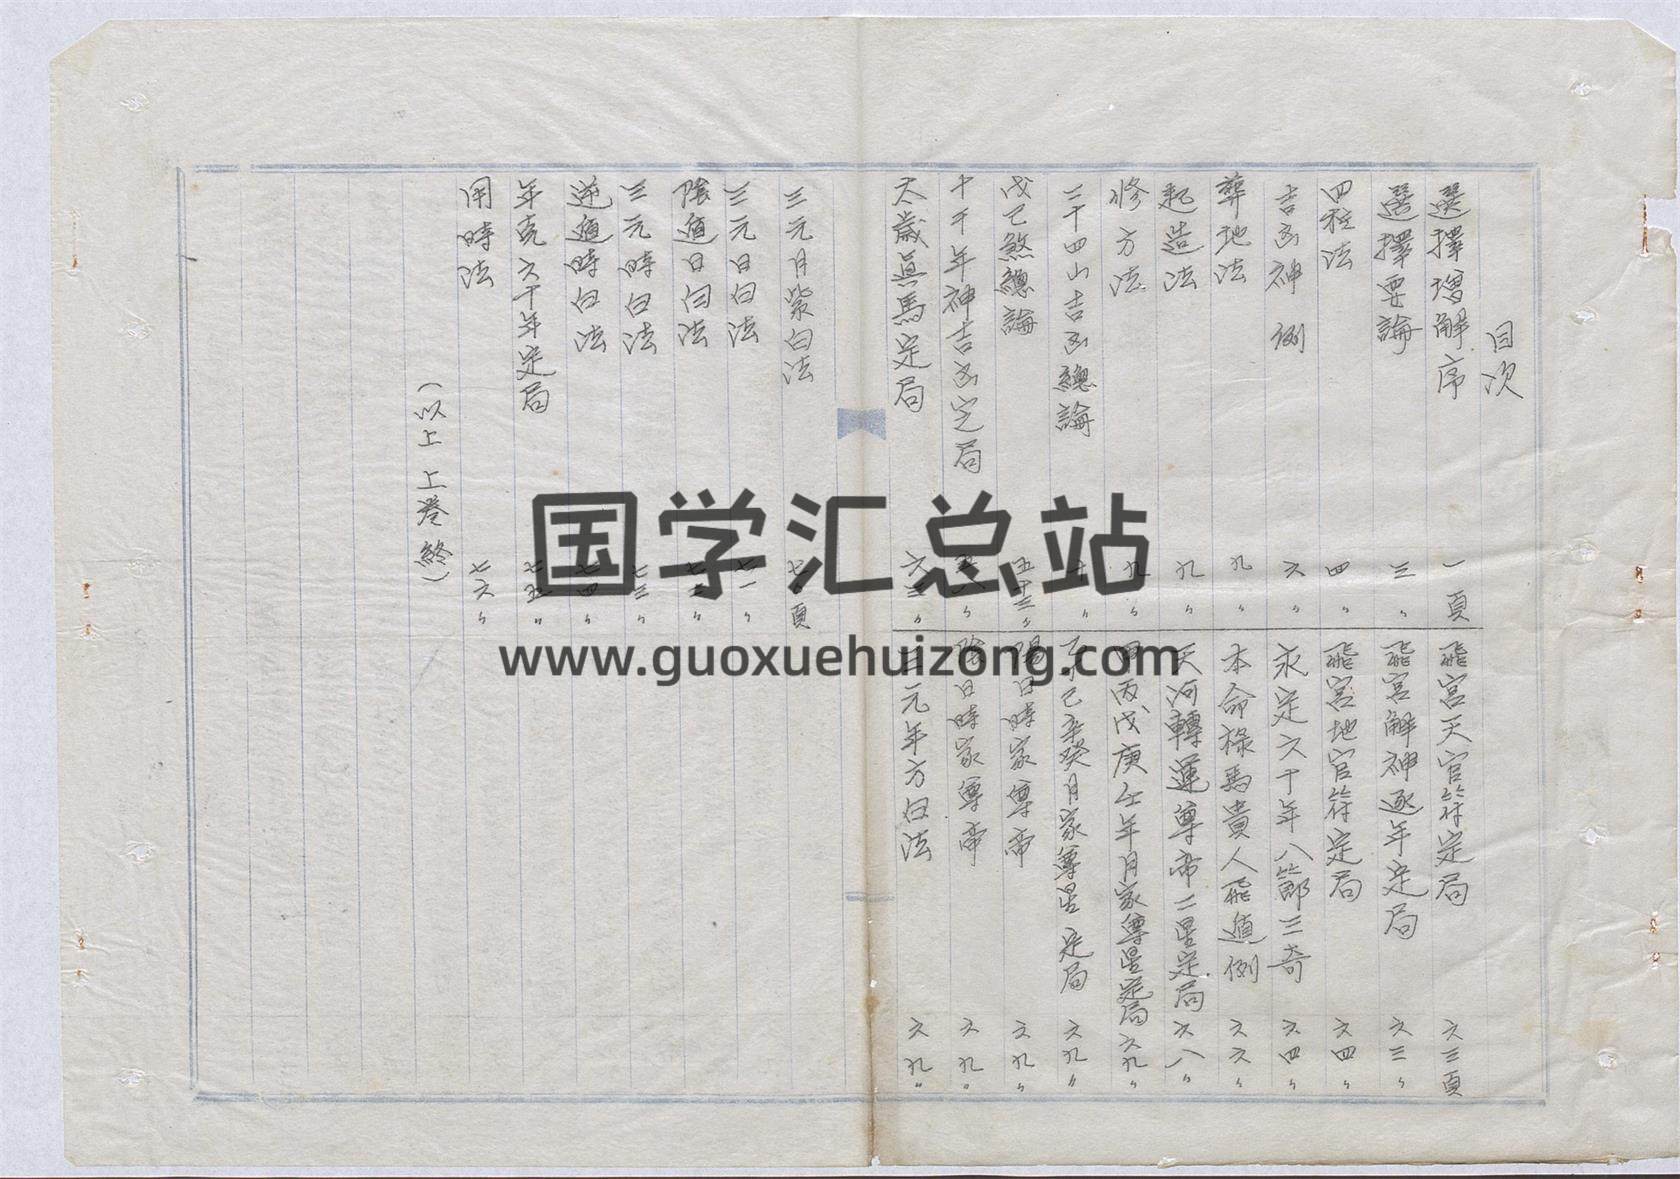 目次
選擇增解序 一頁
選擇要論 三〃
四種法 四〃
吉凶神例 六〃
葬地法 九〃
起造法 九〃
修方法 九〃
二十四山吉凶總論
戊己煞總論 五十三〃
十干年神吉凶定局
太歲眞馬定局
飛宮天官符定局 六三頁
飛宮解神逐年定局 六三〃
飛宮地官符定局 六四〃
永定六十年八節三奇 六四〃
本命祿馬貴人飛遁例 六六〃
天河轉運尊帝二星定局 六八〃
甲丙戊庚壬年月家尊星定局 六九〃
乙丁己辛癸月家尊星定局 六九〃
陽日時家尊帝 六九〃
陰日時家尊帝 六九〃
三元年方白法 六九〃
三元月紫白法
三元日白法 七一〃
陰遁日白法
三元時白法 七三〃
逆遁時白法 七四〃
年克六十年定局 七五〃
用時法 七六〃
（以上上卷終）
国学汇总站
www.guoxuehuizong.com